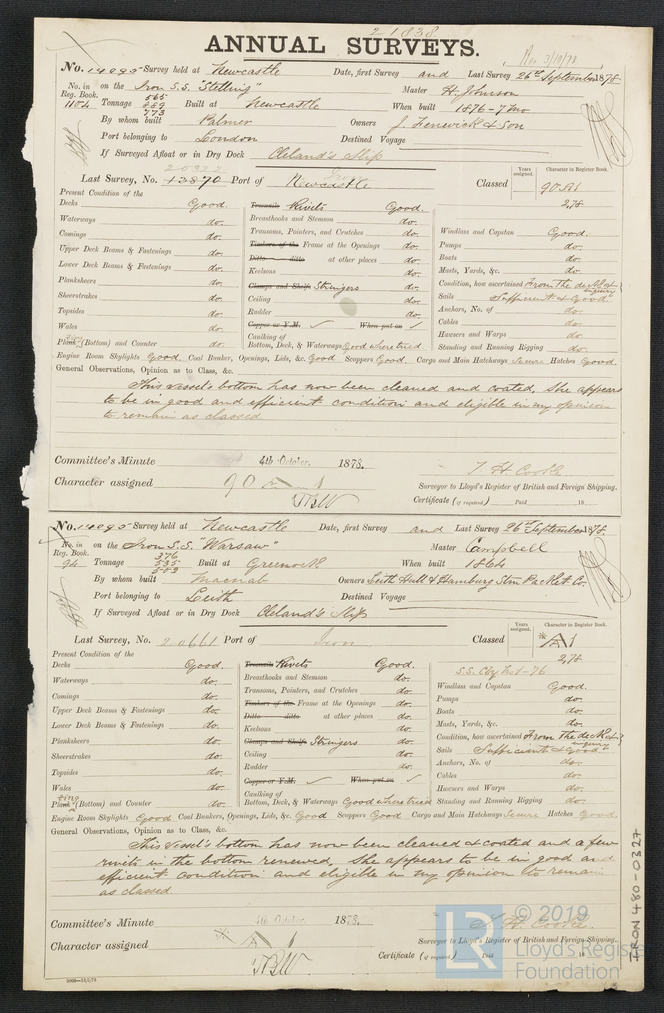 21838
ANNUAL SURVEYS.
Rec 3/10/78
No. 14095 Survey held at Newcastle Date, first Survey and Last Survey 26th September 1878
No. in Reg. Book. on the Iron S.S. "Stelling" Master H. Johnson
1184 Tonnage 565 859 773 Built at Newcastle When built 1876 - 7 mo
By whom built Palmer Owners J. Fenwick & Son
Port belonging to London Destined Voyage
If Surveyed Afloat or in Dry Dock Cleland's Slip
Last Survey, No. 13870 Port of Newcastle Classed Years assigned. Character in Register Book. 90A1
2,78
Present Condition of the
Decks Good. Treenails Rivets Good.
Waterways do. Breasthooks and Stemson do. Windlass and Capstan Good.
Comings do. Transoms, Pointers, and Crutches do. Pumps do.
Upper Deck Beams & Fastenings do. Timbers of the Frame at the Openings do. Boats do.
Lower Deck Beams & Fastenings do. Ditto ditto at other places do. Masts, Yards, &c. do.
Planksheers do. Keelsons do. Condition, how ascertained From the deck & inquiry
Sheerstrakes do. Clamps and Shelfs Stringers do. Sails Sufficient & Good
Topsides do. Ceiling do. Anchors, No. of do.
Wales do. Rudder do. Cables do.
Plank (Bottom) and Counter do. Copper or Y.M. ✓ When put on ✓ Hawsers and Warps do.
Caulking of Bottom, Deck, & Waterways Good where tried Standing and Running Rigging do.
Engine Room Skylights Good. Coal Bunker, Openings, Lids, &c. Good Scuppers Good. Cargo and Main Hatchways Secure Hatches Good.
General Observations, Opinion as to Class, &c.
This vessel's bottom has now been cleaned and coated, She appears
to be in good and efficient condition and eligible in my opinion
to remain as classed
Committee's Minute 4th October, 1878.
Character assigned 90 A 1
T H Cooke
Surveyor to Lloyd's Register of British and Foreign Shipping.
Certificate (if required) Paid 18
No. 14095 Survey held at Newcastle Date, first Survey and Last Survey 26th September 1878.
No. in Reg. Book. on the Iron S.S. "Warsaw" Master Campbell
94 Tonnage 376 535 582 Built at Greenock When built 1864
By whom built Macnab Owners Leith Hull & Hamburg Stm Packet Co.
Port belonging to Leith Destined Voyage
If Surveyed Afloat or in Dry Dock Cleland's Slip
Last Survey, No. 20661 Port of Iron Classed Years assigned. Character in Register Book. A1
2,78
Present Condition of the
Decks Good. Treenails Rivets Good.
Waterways do. Breasthooks and Stemson do. Windlass and Capstan Good.
Comings do. Transoms, Pointers, and Crutches do. Pumps do.
Upper Deck Beams & Fastenings do. Timbers of the Frame at the Openings do. Boats do.
Lower Deck Beams & Fastenings do. Ditto ditto at other places do. Masts, Yards, &c. do.
Planksheers do. Keelsons do. Condition, how ascertained From the deck & inquiry
Sheerstrakes do. Clamps and Shelfs Stringers do. Sails Sufficient & Good
Topsides do. Ceiling do. Anchors, No. of do.
Wales do. Rudder do. Cables do.
Plank (Bottom) and Counter do. Copper or Y.M. ✓ When put on ✓ Hawsers and Warps do.
Caulking of Bottom, Deck, & Waterways Good where tried Standing and Running Rigging do.
Engine Room Skylights Good Coal Bunkers, Openings, Lids, &c. Good Scuppers Good Cargo and Main Hatchways Secure Hatches Good.
General Observations, Opinion as to Class, &c.
This vessel's bottom has now been cleaned & coated and a few
rivits in the bottom renewed, She appears to be in good and
efficient condition and eligible in my opinion to remain
as classed.
Committee's Minute 4th October, 1878.
Character assigned A 1
T. H. Cooke
Surveyor to Lloyd's Register of British and Foreign Shipping.
Certificate (if required) Paid 18
IRON 480-0327
LR
© 2019
Lloyd's Register
Foundation